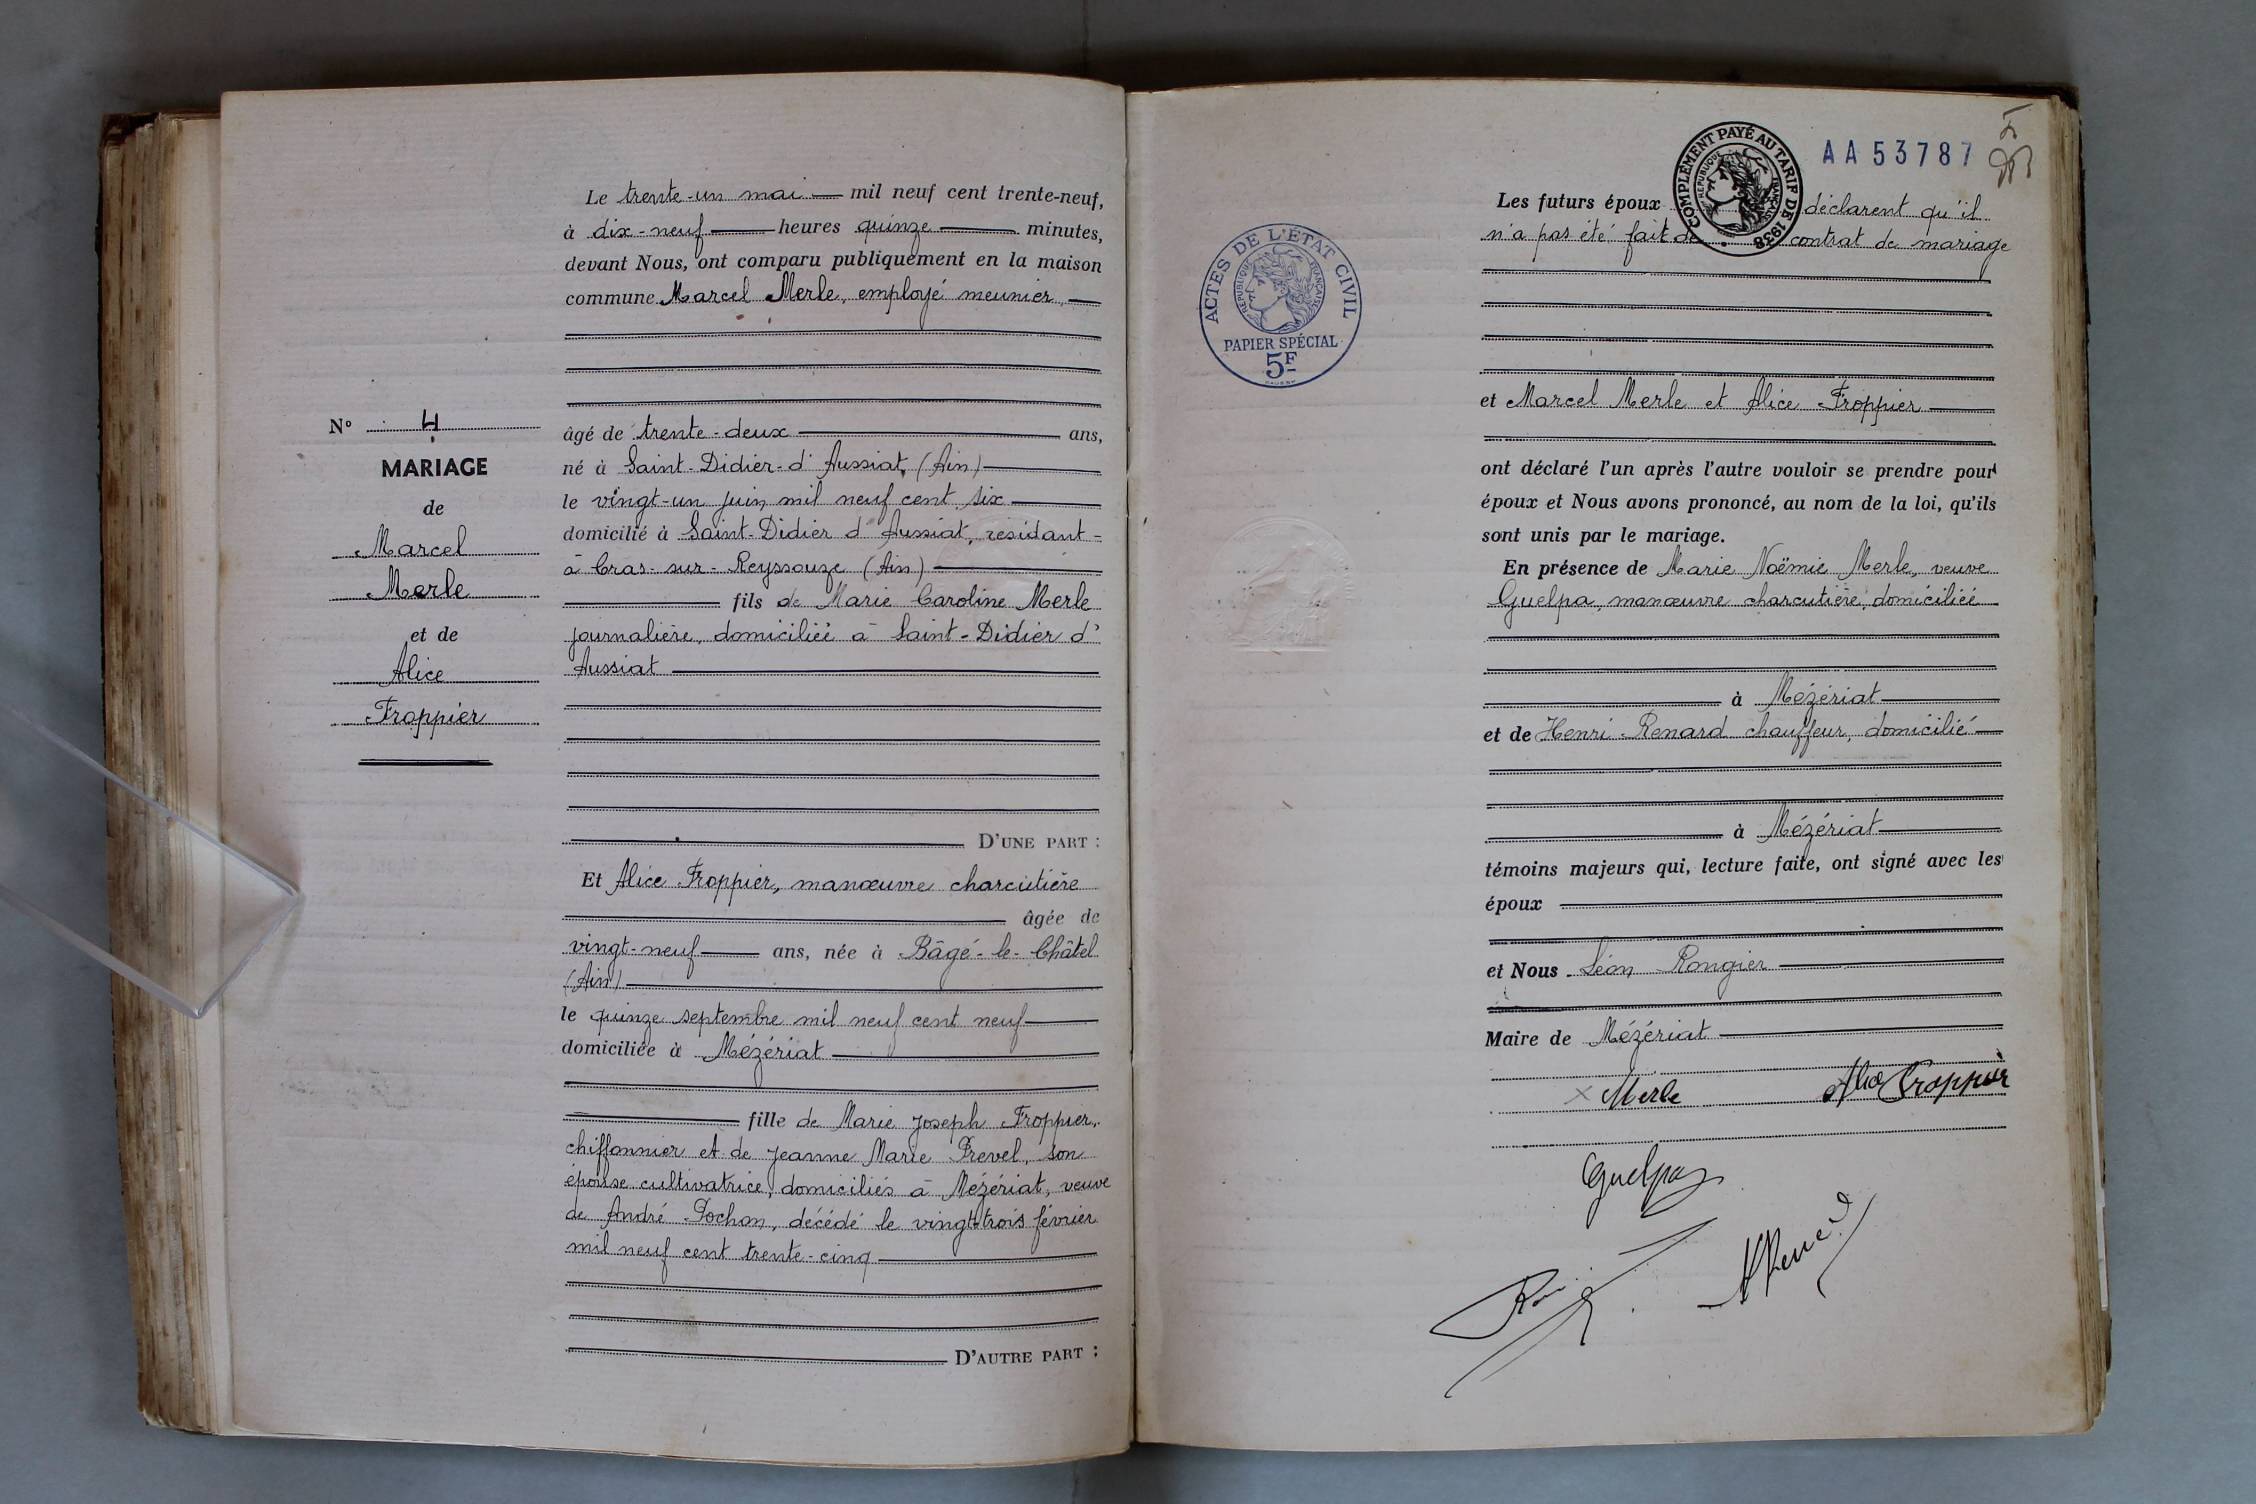 Le trente-un mai mil neuf cent trente-neuf,
à dix-neuf heures quinze minutes,
devant Nous, ont comparu publiquement en la maison
commune Marcel Merle, employé meunier,
N° 4
MARIAGE
de
Marcel
Merle
et de
Alice
Froppier
âgé de trente-deux ans,
né à Saint-Didier-d'Aussiat, (Ain)
le vingt-un juin mil neuf cent six
domicilié à Saint-Didier d'Aussiat, résidant
à Cras-sur-Reyssouze (Ain)
fils de Marie Caroline Merle
journalière, domiciliée à Saint-Didier d'
Aussiat
D'UNE PART :
Et Alice Froppier, manœuvre charcutière
âgée de
vingt-neuf ans, née à Bâgé-le-Châtel
(Ain)
le quinze septembre mil neuf cent neuf
domiciliée à Mézériat
fille de Marie Joseph Froppier,
chiffonnier et de Jeanne Marie Prevel, son
épouse cultivatrice, domiciliés à Mézériat, veuve
de André Pochon, décédé le vingt-trois février
mil neuf cent trente-cinq
D'AUTRE PART :
COMPLÉMENT PAYÉ AU TARIF DE 1938
RÉPUBLIQUE FRANÇAISE
AA53787
ACTES DE L'ÉTAT CIVIL
RÉPUBLIQUE FRANÇAISE
PAPIER SPÉCIAL
5F
Les futurs époux déclarent qu'il
n'a pas été fait de contrat de mariage
et Marcel Merle et Alice Froppier
ont déclaré l'un après l'autre vouloir se prendre pour
époux et Nous avons prononcé, au nom de la loi, qu'ils
sont unis par le mariage.
En présence de Marie Noëmie Merle, veuve
Guelpa, manœuvre charcutière, domiciliée
à Mézériat
et de Henri Renard chauffeur, domicilié
à Mézériat
témoins majeurs qui, lecture faite, ont signé avec les
époux
et Nous Léon Rongier
Maire de Mézériat
Merle Alice Froppier
Guelpa